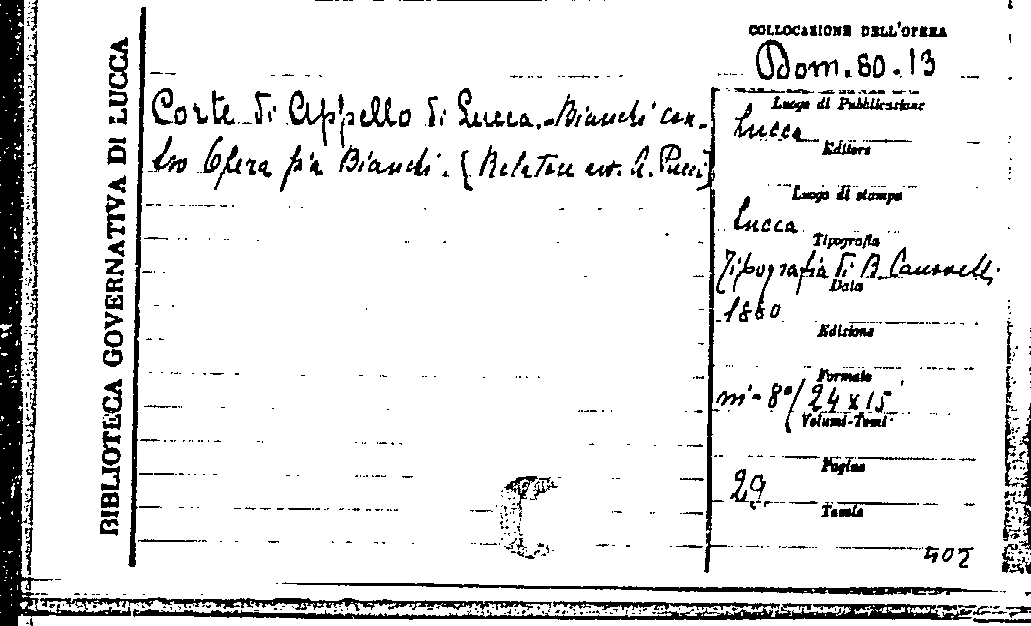 BIBLIOTECA GOVERNATIVA DI LUCCA
Corte di Appello di Lucca. - Bianchi con-
tro Opera pia Bianchi. (Relatore avv. A. Pucci)
C
COLLOCAZIONE DELL'OPERA
Dom. 80. 13
Luogo di Pubblicazione
Lucca
Editore
Luogo di stampa
Lucca
Tipografia
Tipografia di B. Canovetti
Data
1880
Edizione
Formato
in-8°/24x15
Volumi-Tomi
Pagine
29.
Tavole
402